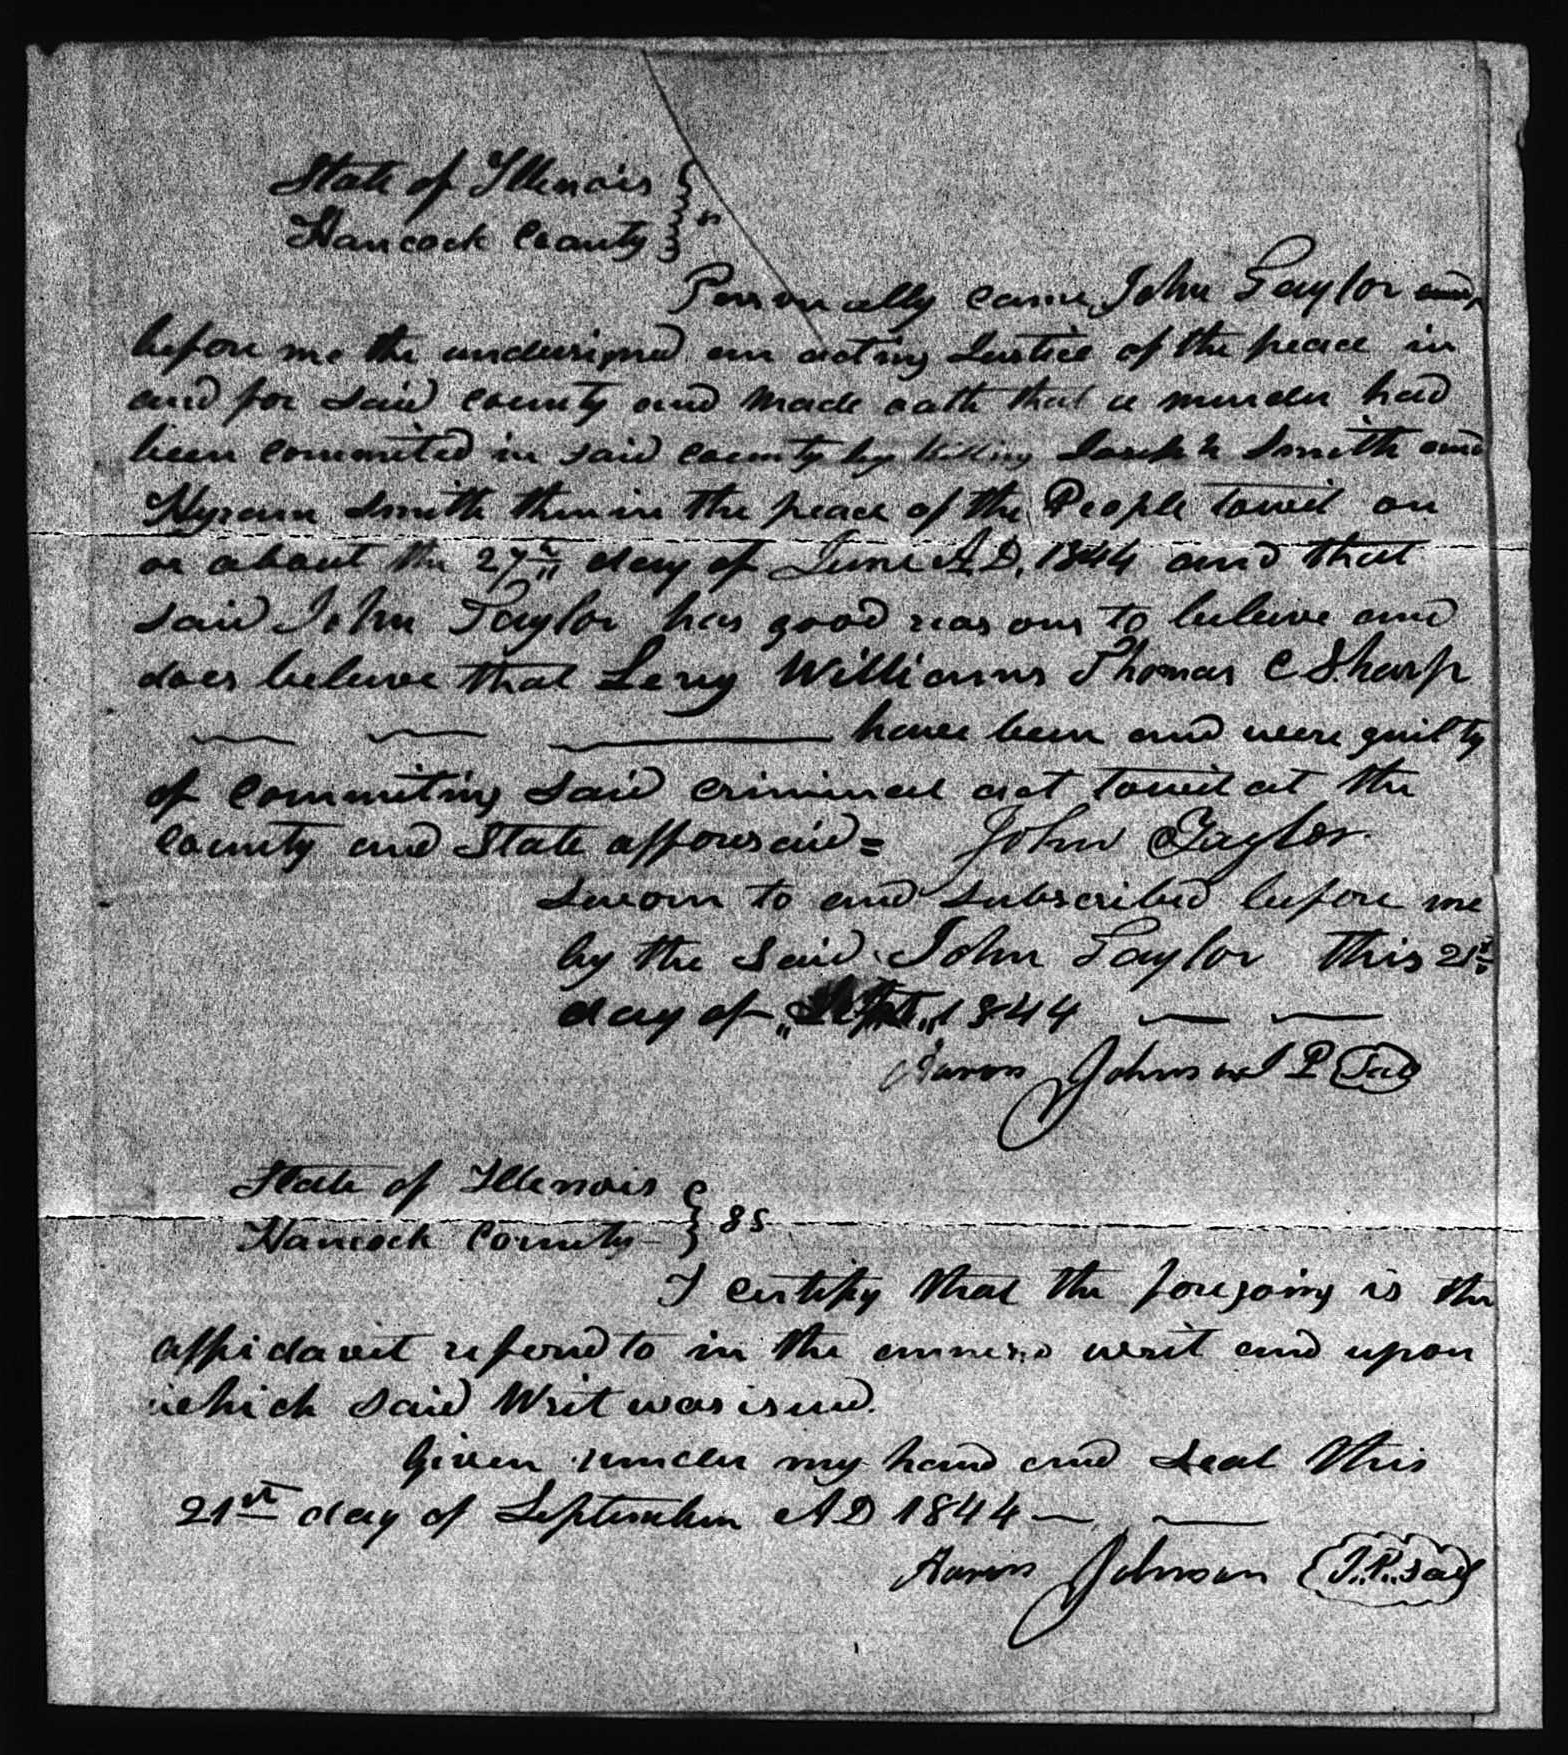 State of Illinois }
Hancock County } ss
Personally came John Taylor and
before me the undersigned an acting Justice of the peace in
and for said county and made oath that a murder had
been commited in said county by killing Joseph Smith and
Hyrum Smith then in the peace of the People towit on
or about the 27th day of June A.D. 1844 and that
said John Taylor has good reasons to beleive and
does beleive that Levy Williams Thomas C Sharp
have been and were guilty
of commiting said criminal act towit at the
county and State afforesaid = John Taylor
Sworn to and subscribed before me
by the said John Taylor this 21st
day of "Sept" 1844
Aaron Johnson J P Seal
State of Illinois }
Hancock County } SS
I certify that the foregoing is the
affidavit refered to in the annexed writ and upon
which said Writ was issued.
Given under my hand and Seal this
21st day of September AD 1844
Aaron Johnson J.P. Seal